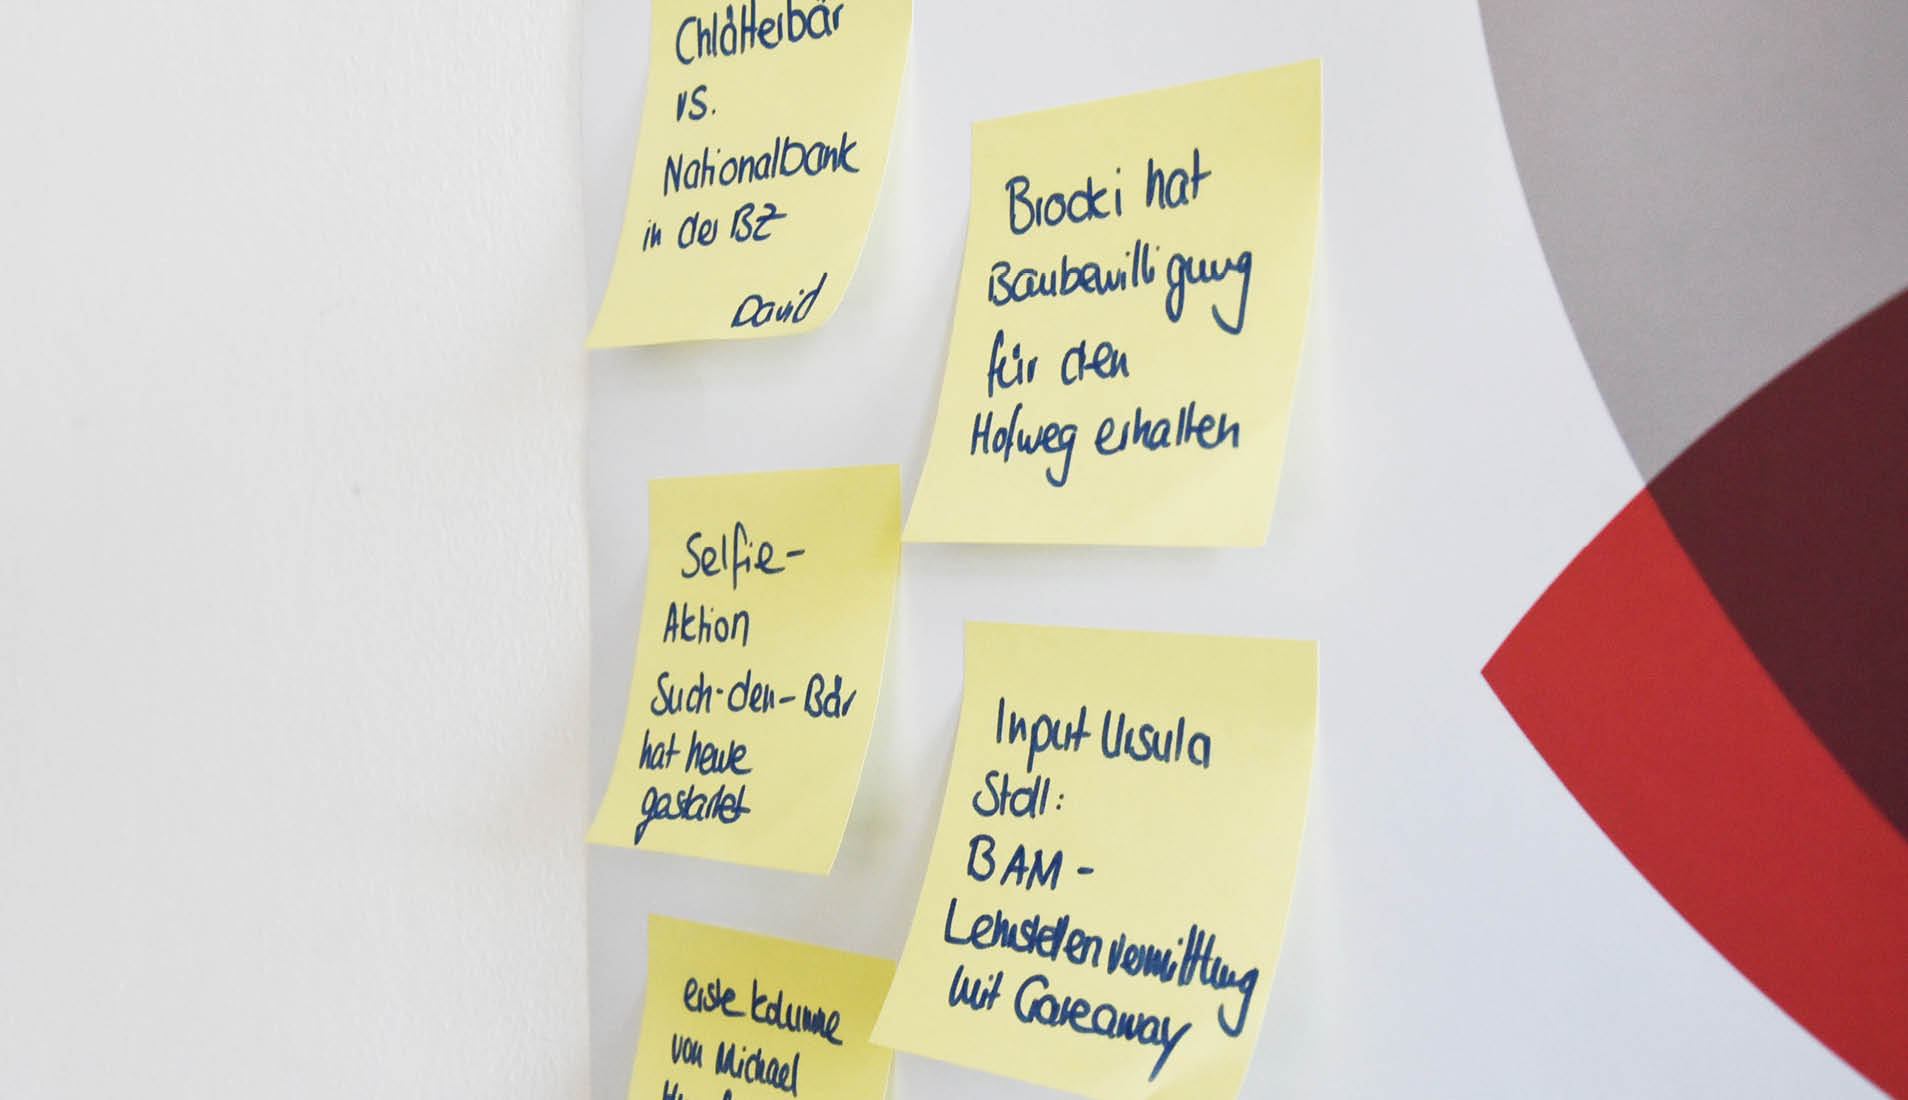 Chlätterbär
vs.
Nationalbank
in der BZ
David
Brocki hat
Baubewilligung
für den
Hofweg erhalten
Selfie-
Aktion
Such-den-Bär
hat heute
gestartet
Input Ursula
Stoll:
BAM-
Lehrstellenvermittlung
mit Careaway
erste Kolumne
von Michael